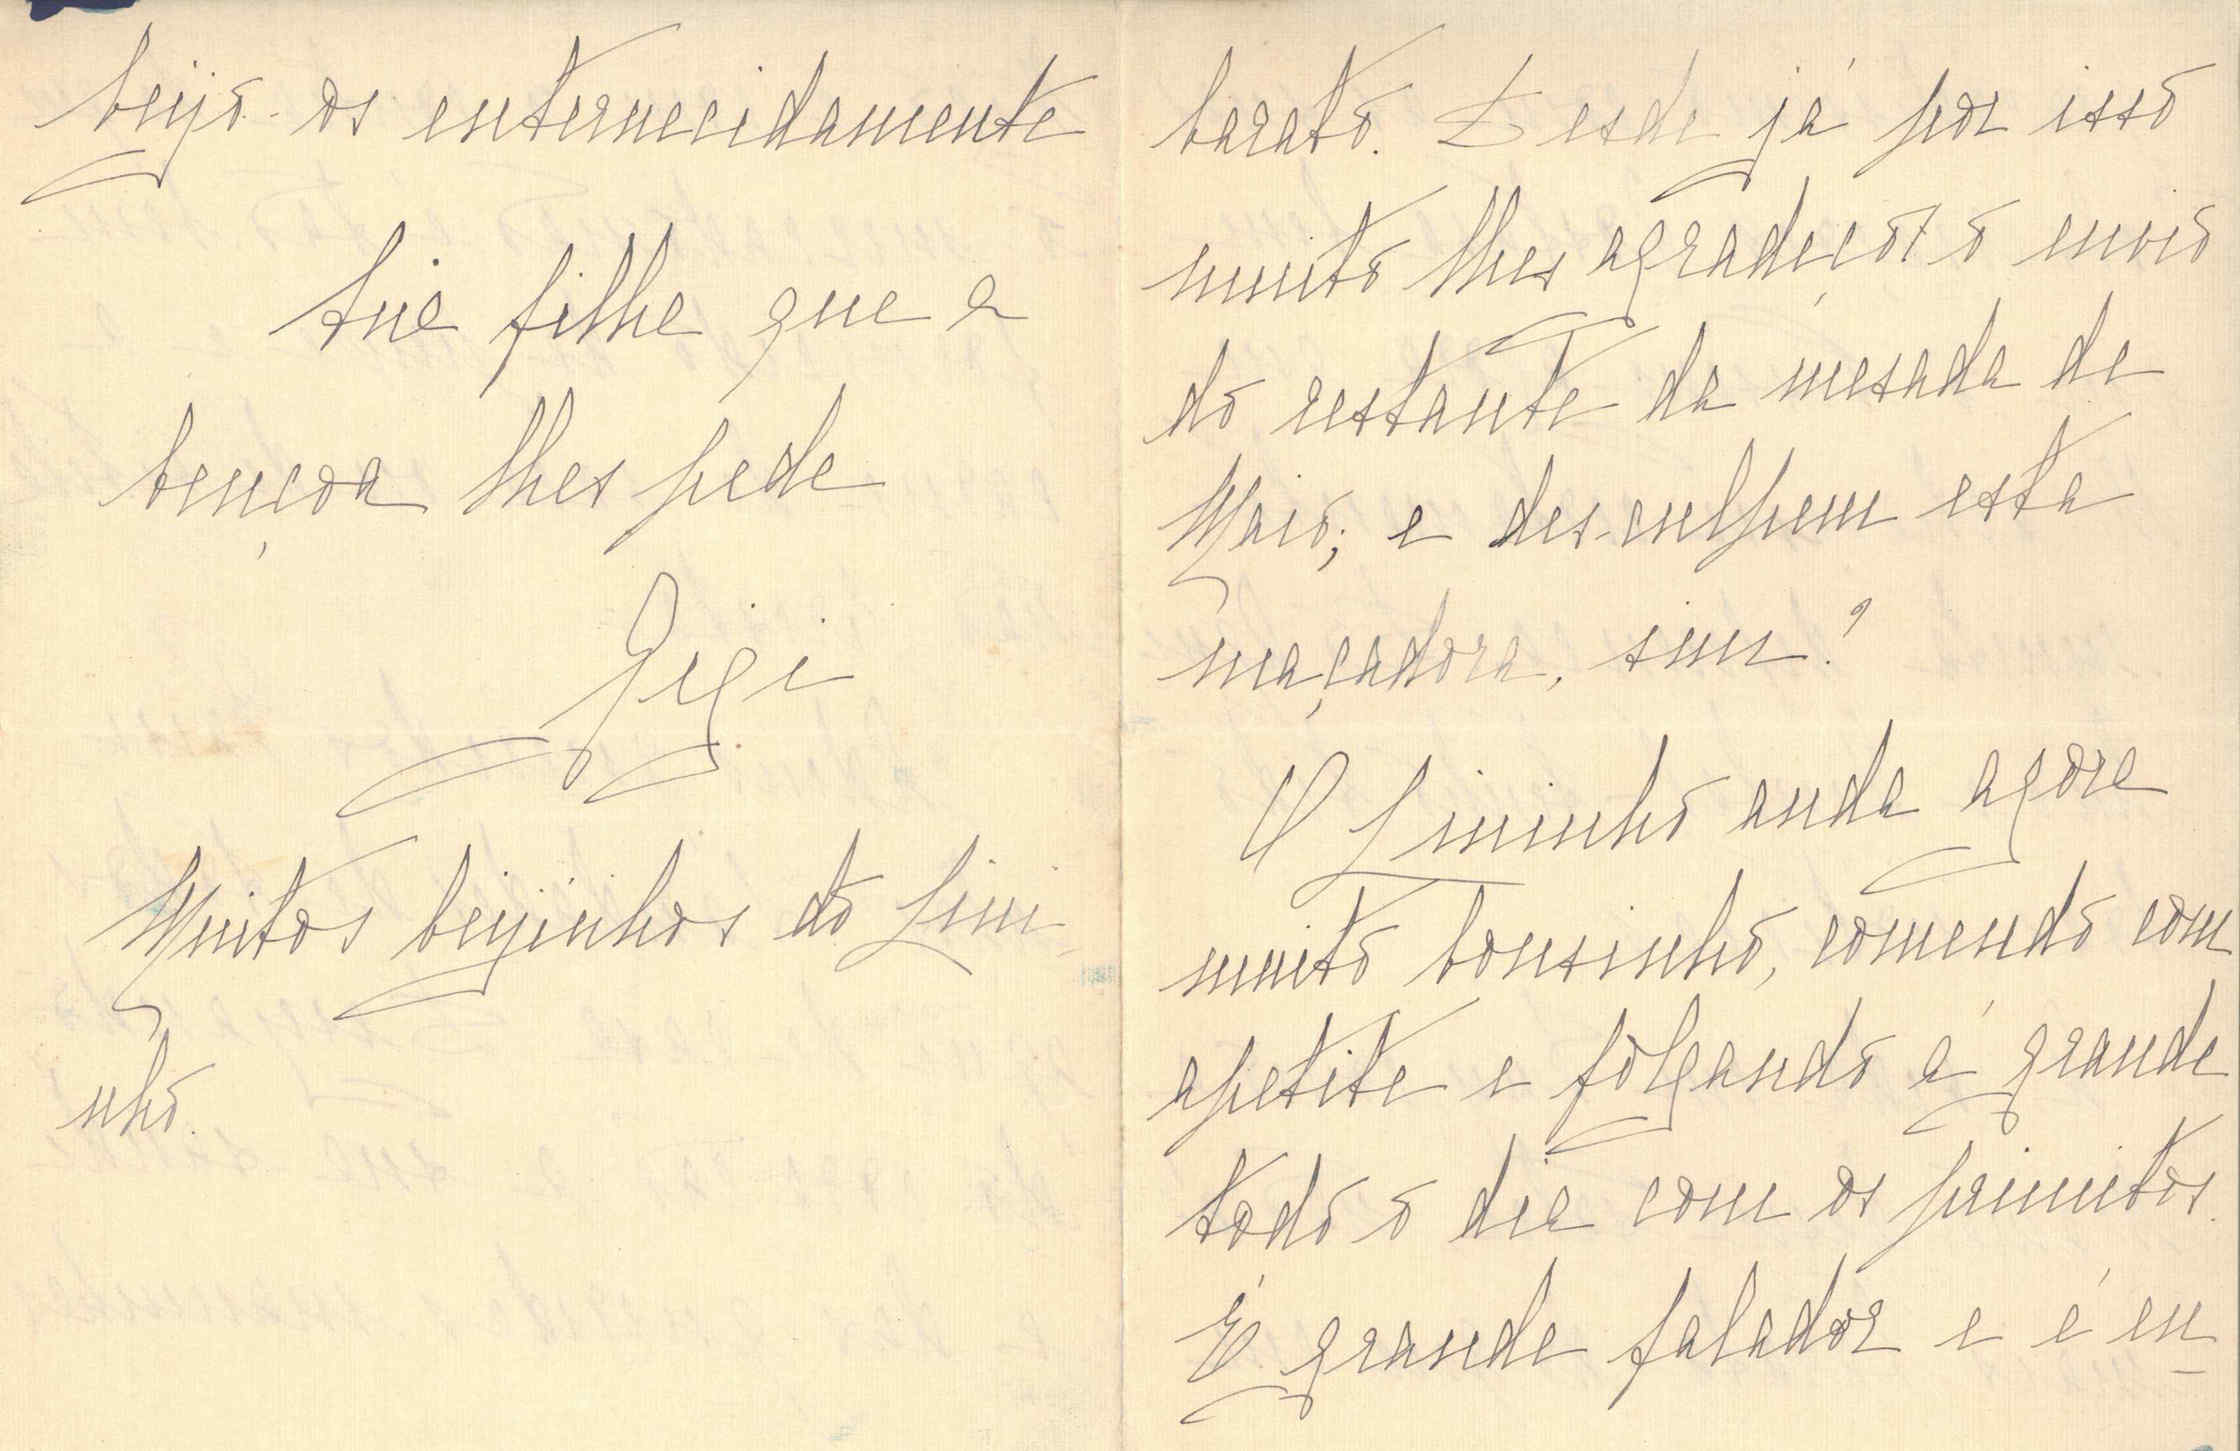 beijo-os enternecidamente
tua filha que a
bençoa lhes pede
Gigi
Muitos beijinhos do Lini-
nho.
barato. Desde já por isso
muito lhes agradeço o envio
do restante da mesada de
Maio; e desculpem esta
maçadora, sim?
O Lininho anda agora
muito bonsinho, comendo com
apetite e folgando á grande
todo o dia com os primitos.
É grande falador e é en-